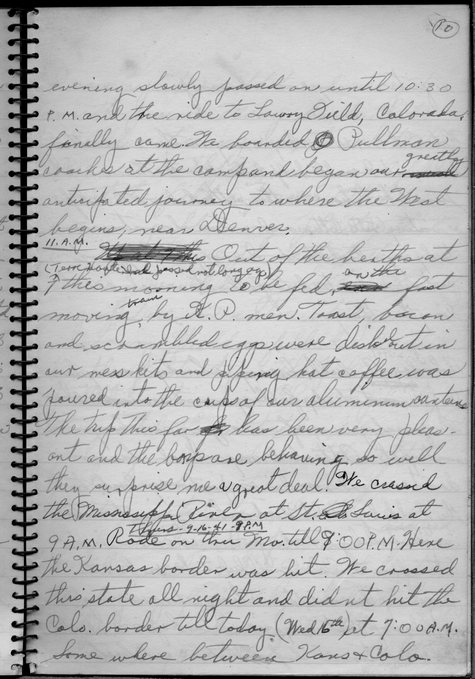 10
evening slowly passed on until 10:30
P.M. and the ride to Lowry Field, Colorado,
finally came. We boarded Pullman
greatly
coaches at the camp and began our
anticipated journey to where the West
begins, near Denver.
11 A.M.
Out of the berths at
(Terre Haute had passed not long ago) on the
7 this morning to be fed, fast
train
moving, by K.P. men. Toast, bacon
and scrambled eggs were dished out in
our mess kits and piping hot coffee was
poured into the cups of our aluminum canteens
The trip thus far has been very pleas-
ant and the boys are behaving so well
they surprise me a great deal. We crossed
the Mississippi River at St. Louis at
9-16-41-8PM
9 A.M. Rode on thru Mo. till 8:00 P.M. Here
the Kansas border was hit. We crossed
this state all night and didn't hit the
Colo. border till today (Wed 16th) at 7:00 A.M.
Some where between Kans & Colo.